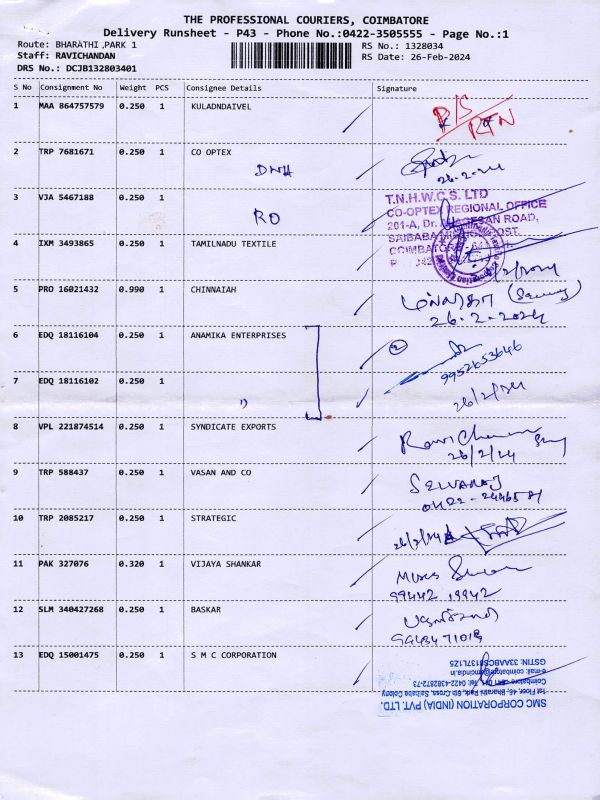 THE PROFESSIONAL COURIERS, COIMBATORE
Delivery Runsheet - P43 - Phone No.:0422-3505555 - Page No.:1
Route: BHARATHI ,PARK 1 RS No.: 1328034
Staff: RAVICHANDAN RS Date: 26-Feb-2024
DRS No.: DCJB132803401
S No Consignment No Weight PCS Consignee Details Signature
1 MAA 864757579 0.250 1 KULADNDAIVEL
RTN
2 TRP 7681671 0.250 1 CO OPTEX
DNH
26.2.24
3 VJA 5467188 0.250 1
RO
T.N.H.W.C.S. LTD
CO-OPTEX REGIONAL OFFICE
201-A, Dr. ROAD,
SAIBABA POST,
4 IXM 3493865 0.250 1 TAMILNADU TEXTILE
COIMBATORE
5 PRO 16021432 0.990 1 CHINNAIAH
26.2.2024
6 EDQ 18116104 0.250 1 ANAMIKA ENTERPRISES
2
9952653646
7 EDQ 18116102 0.250 1
26/2/24
8 VPL 221874514 0.250 1 SYNDICATE EXPORTS
26/2/24
9 TRP 588437 0.250 1 VASAN AND CO
SELVARAJ
10 TRP 2085217 0.250 1 STRATEGIC
26/2/24
11 PAK 327076 0.320 1 VIJAYA SHANKAR
12 SLM 340427268 0.250 1 BASKAR
13 EDQ 15001475 0.250 1 S M C CORPORATION
SMC CORPORATION (INDIA) PVT. LTD.
1st Floor, 46, Bharathi Park, 6th Cross, Saibaba Colony
Coimbatore Tel: 0422-4382872-73